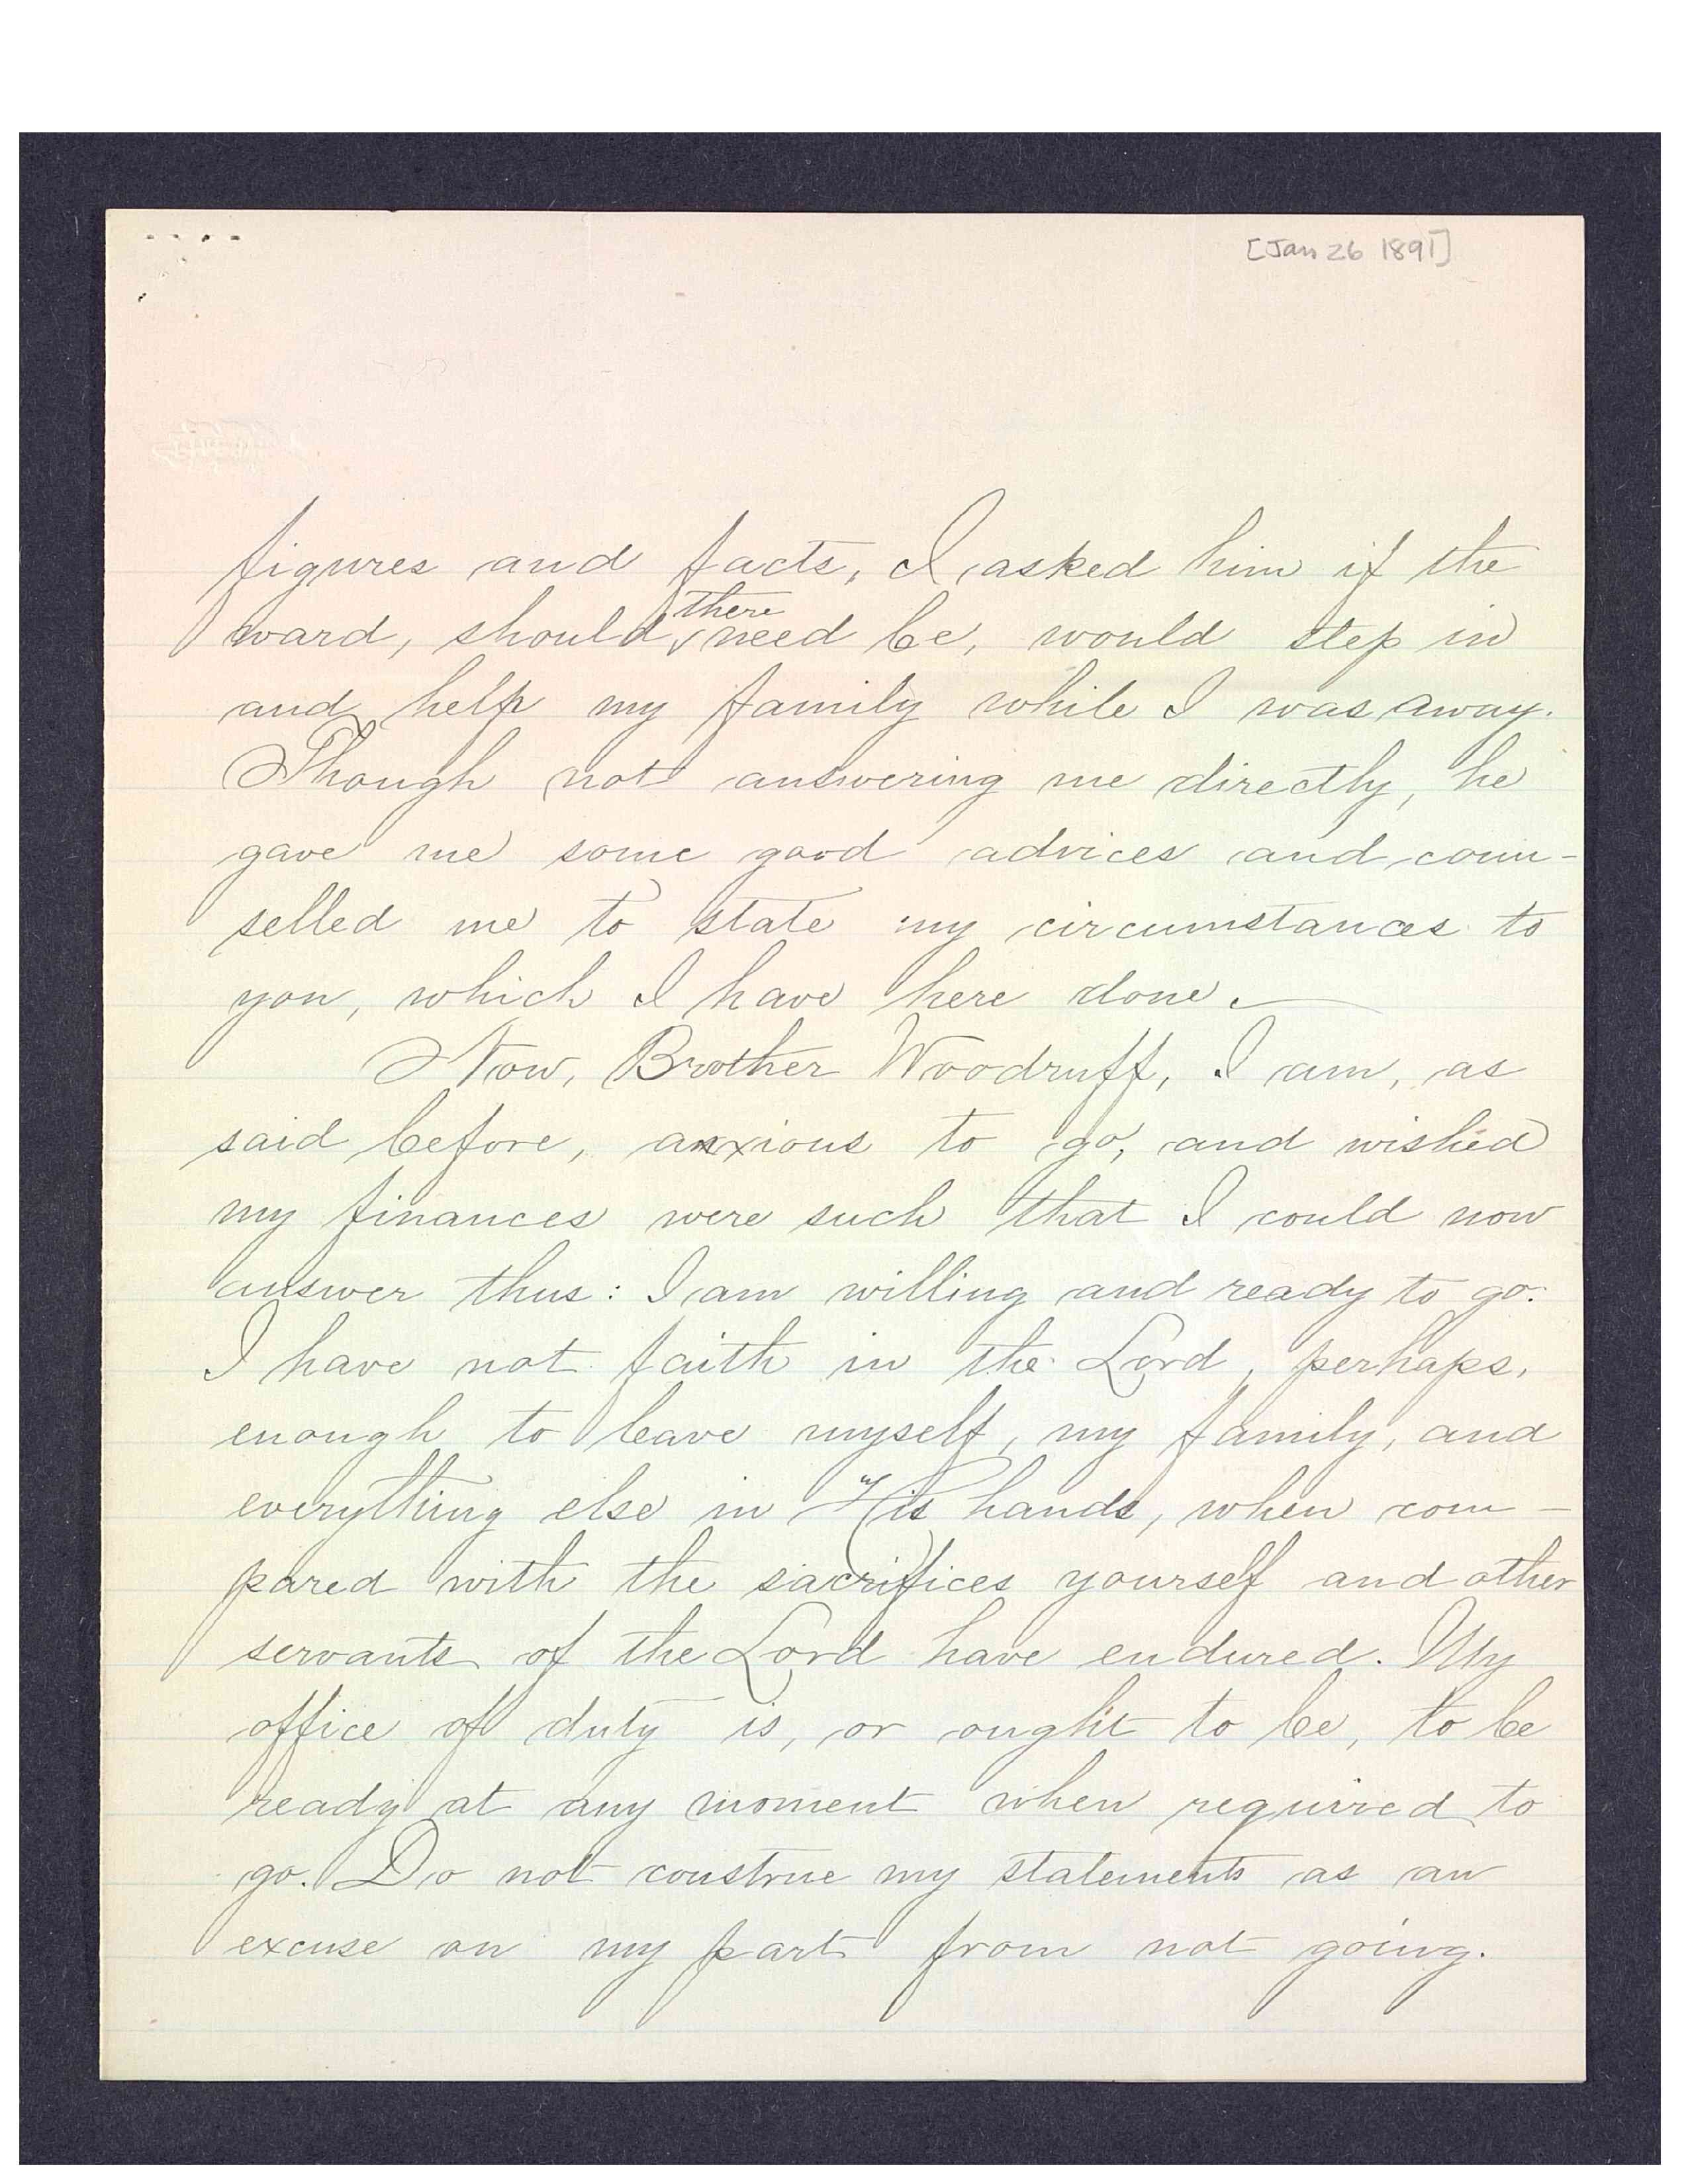 [Jan 26 1891]
figures and facts, I asked him if the
there
ward, should need be, would step in
and help my family while I was away.
Though not answering me directly, he
gave me some good advices and coun-
selled me to state my circumstances to
you, which I have here done.
Now, Brother Woodruff, I am, as
said before, anxious to go, and wished
my finances were such that I could now
answer thus: I am willing and ready to go.
I have not faith in the Lord, perhaps,
enough to leave myself, my family, and
everything else in His hands, when com-
pared with the sacrifices yourself and other
servants of the Lord have endured. My
office of duty is, or ought to be, to be
ready at any moment when required to
go. Do not construe my statements as an
excuse on my part from not going.